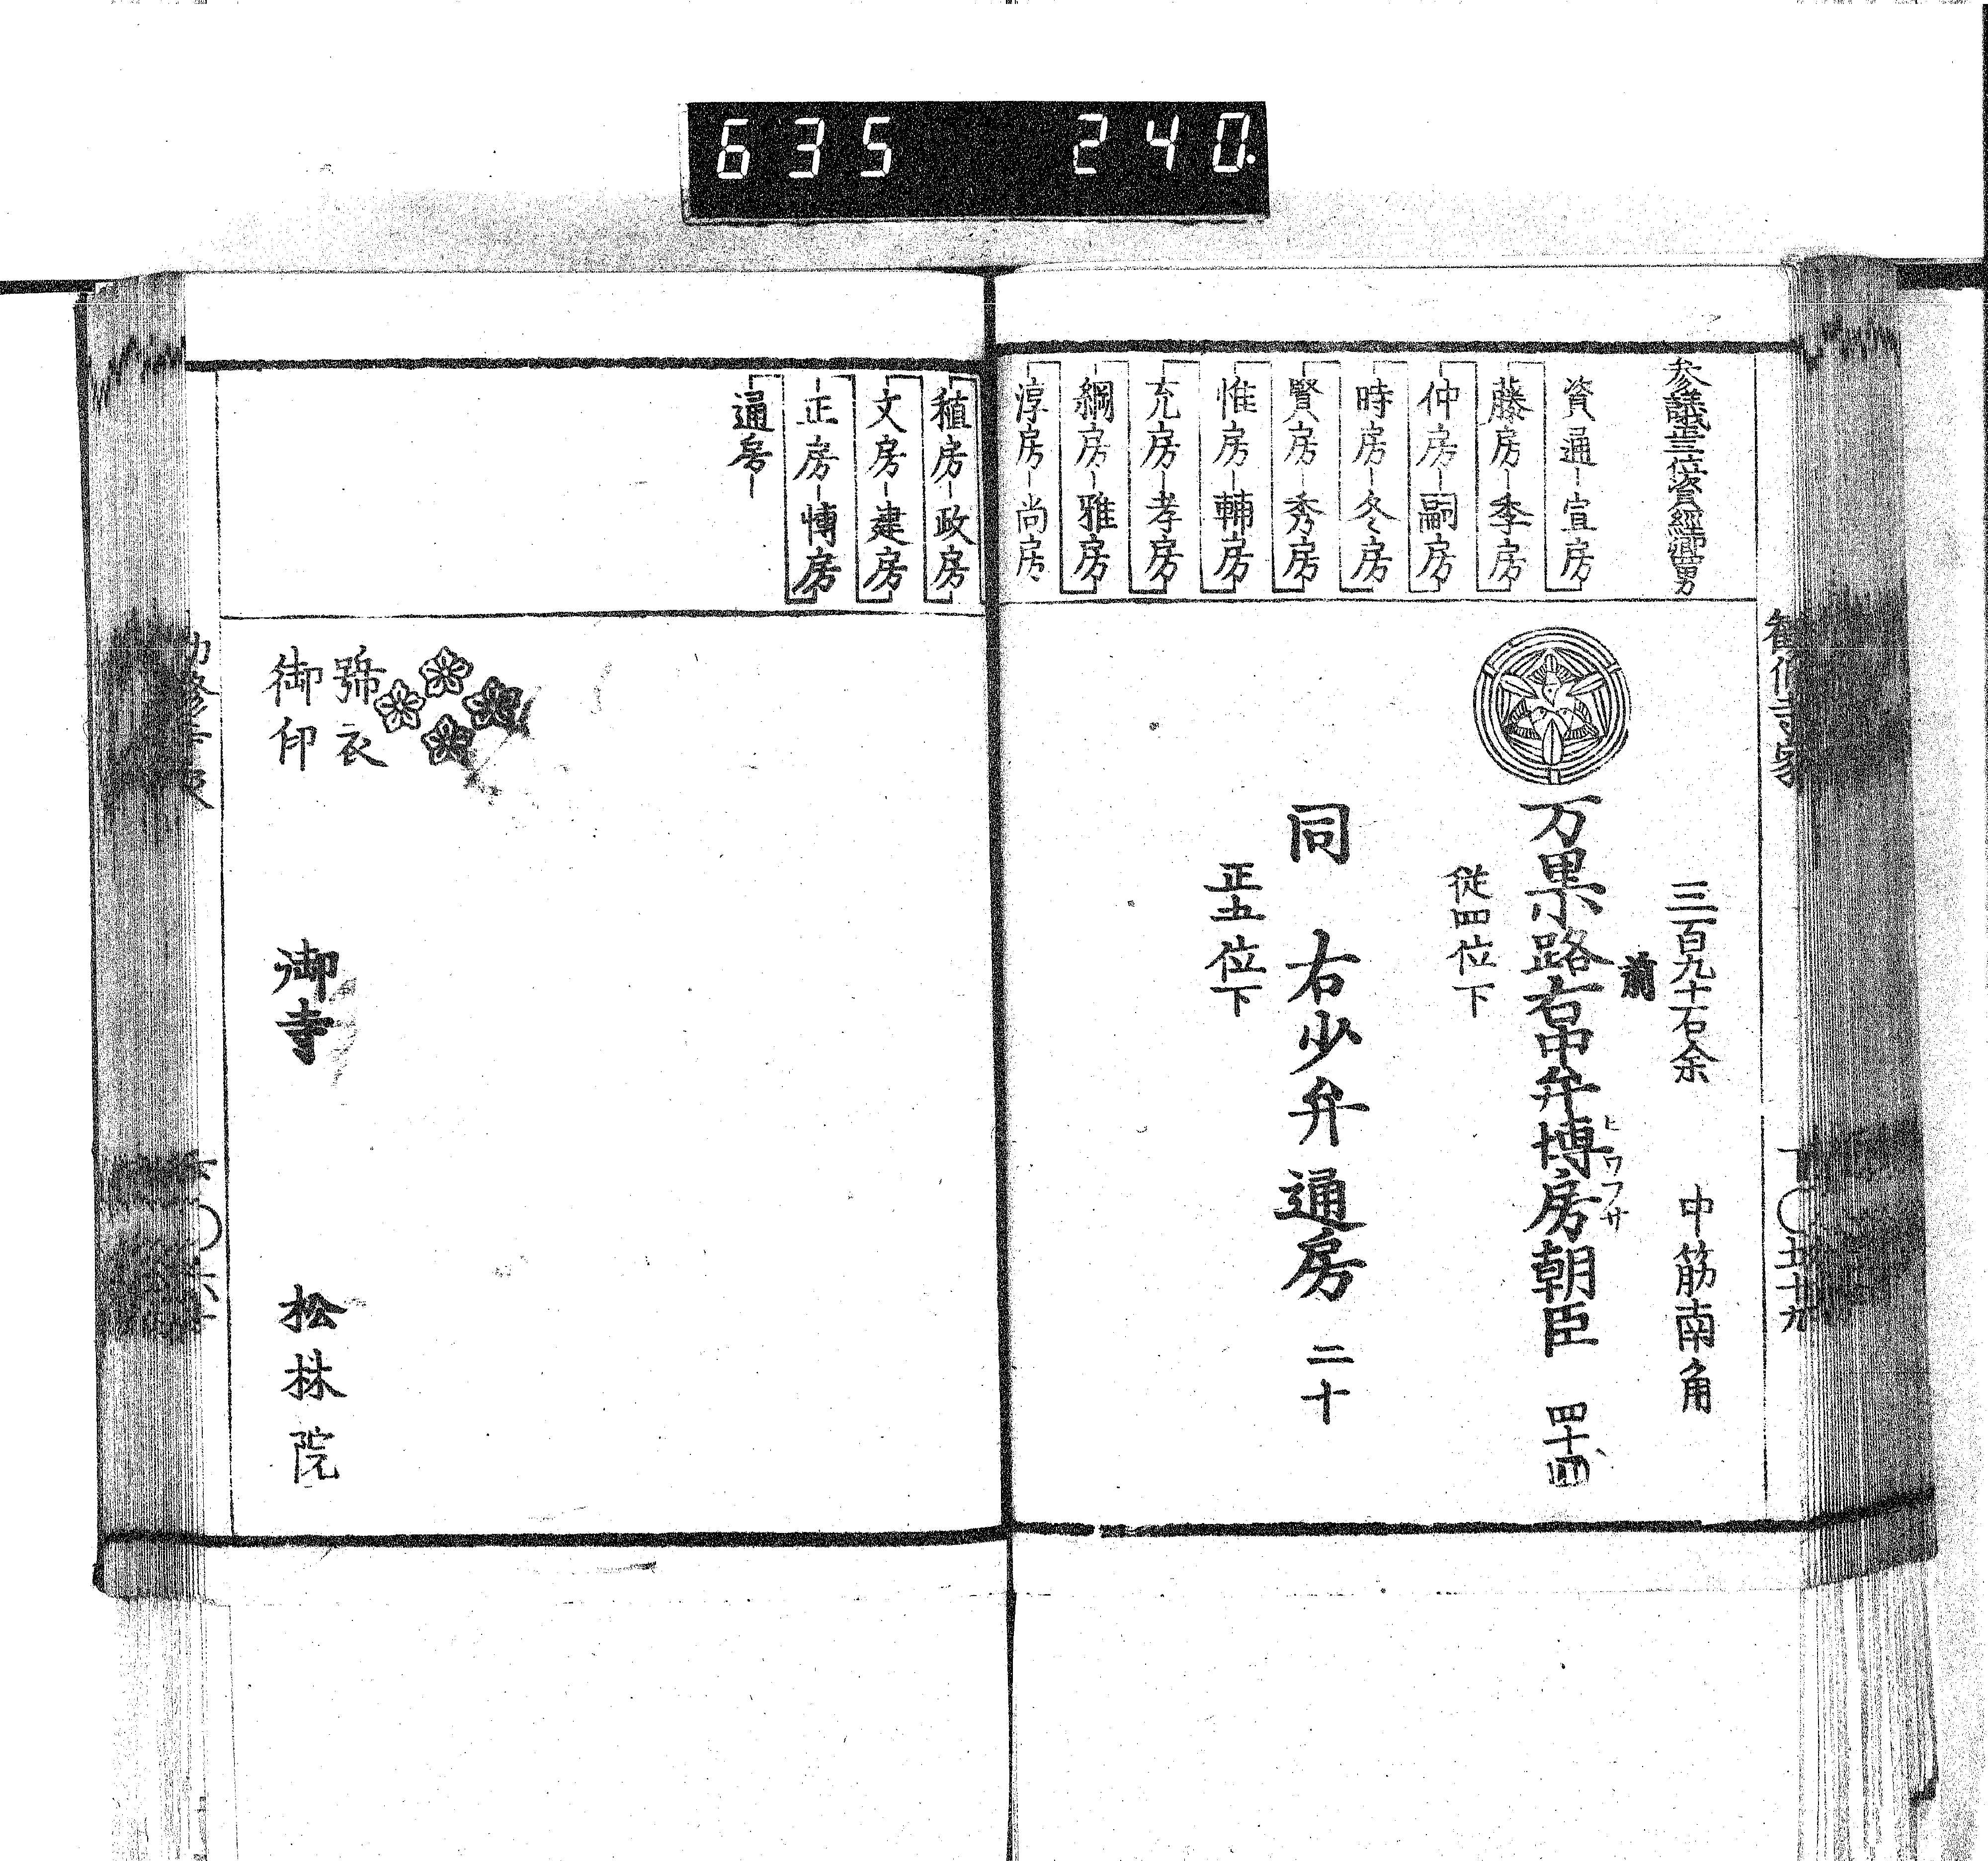 635 240.
参議正三位資経卿男
資通-宣房
藤房-季房
仲房-嗣房
時房-冬房
賢房-秀房
惟房-輔房
充房-孝房
綱房-雅房
淳房-尚房
三百九十石余 中筋南角
万里小路右中弁博房朝臣 四十四
ヒロフサ
従四位下
同 右少弁通房 二十
正五位下
下〇五十九
稙房-政房
文房-建房
正房-博房
通房-
號衣
御印
御寺 松林院